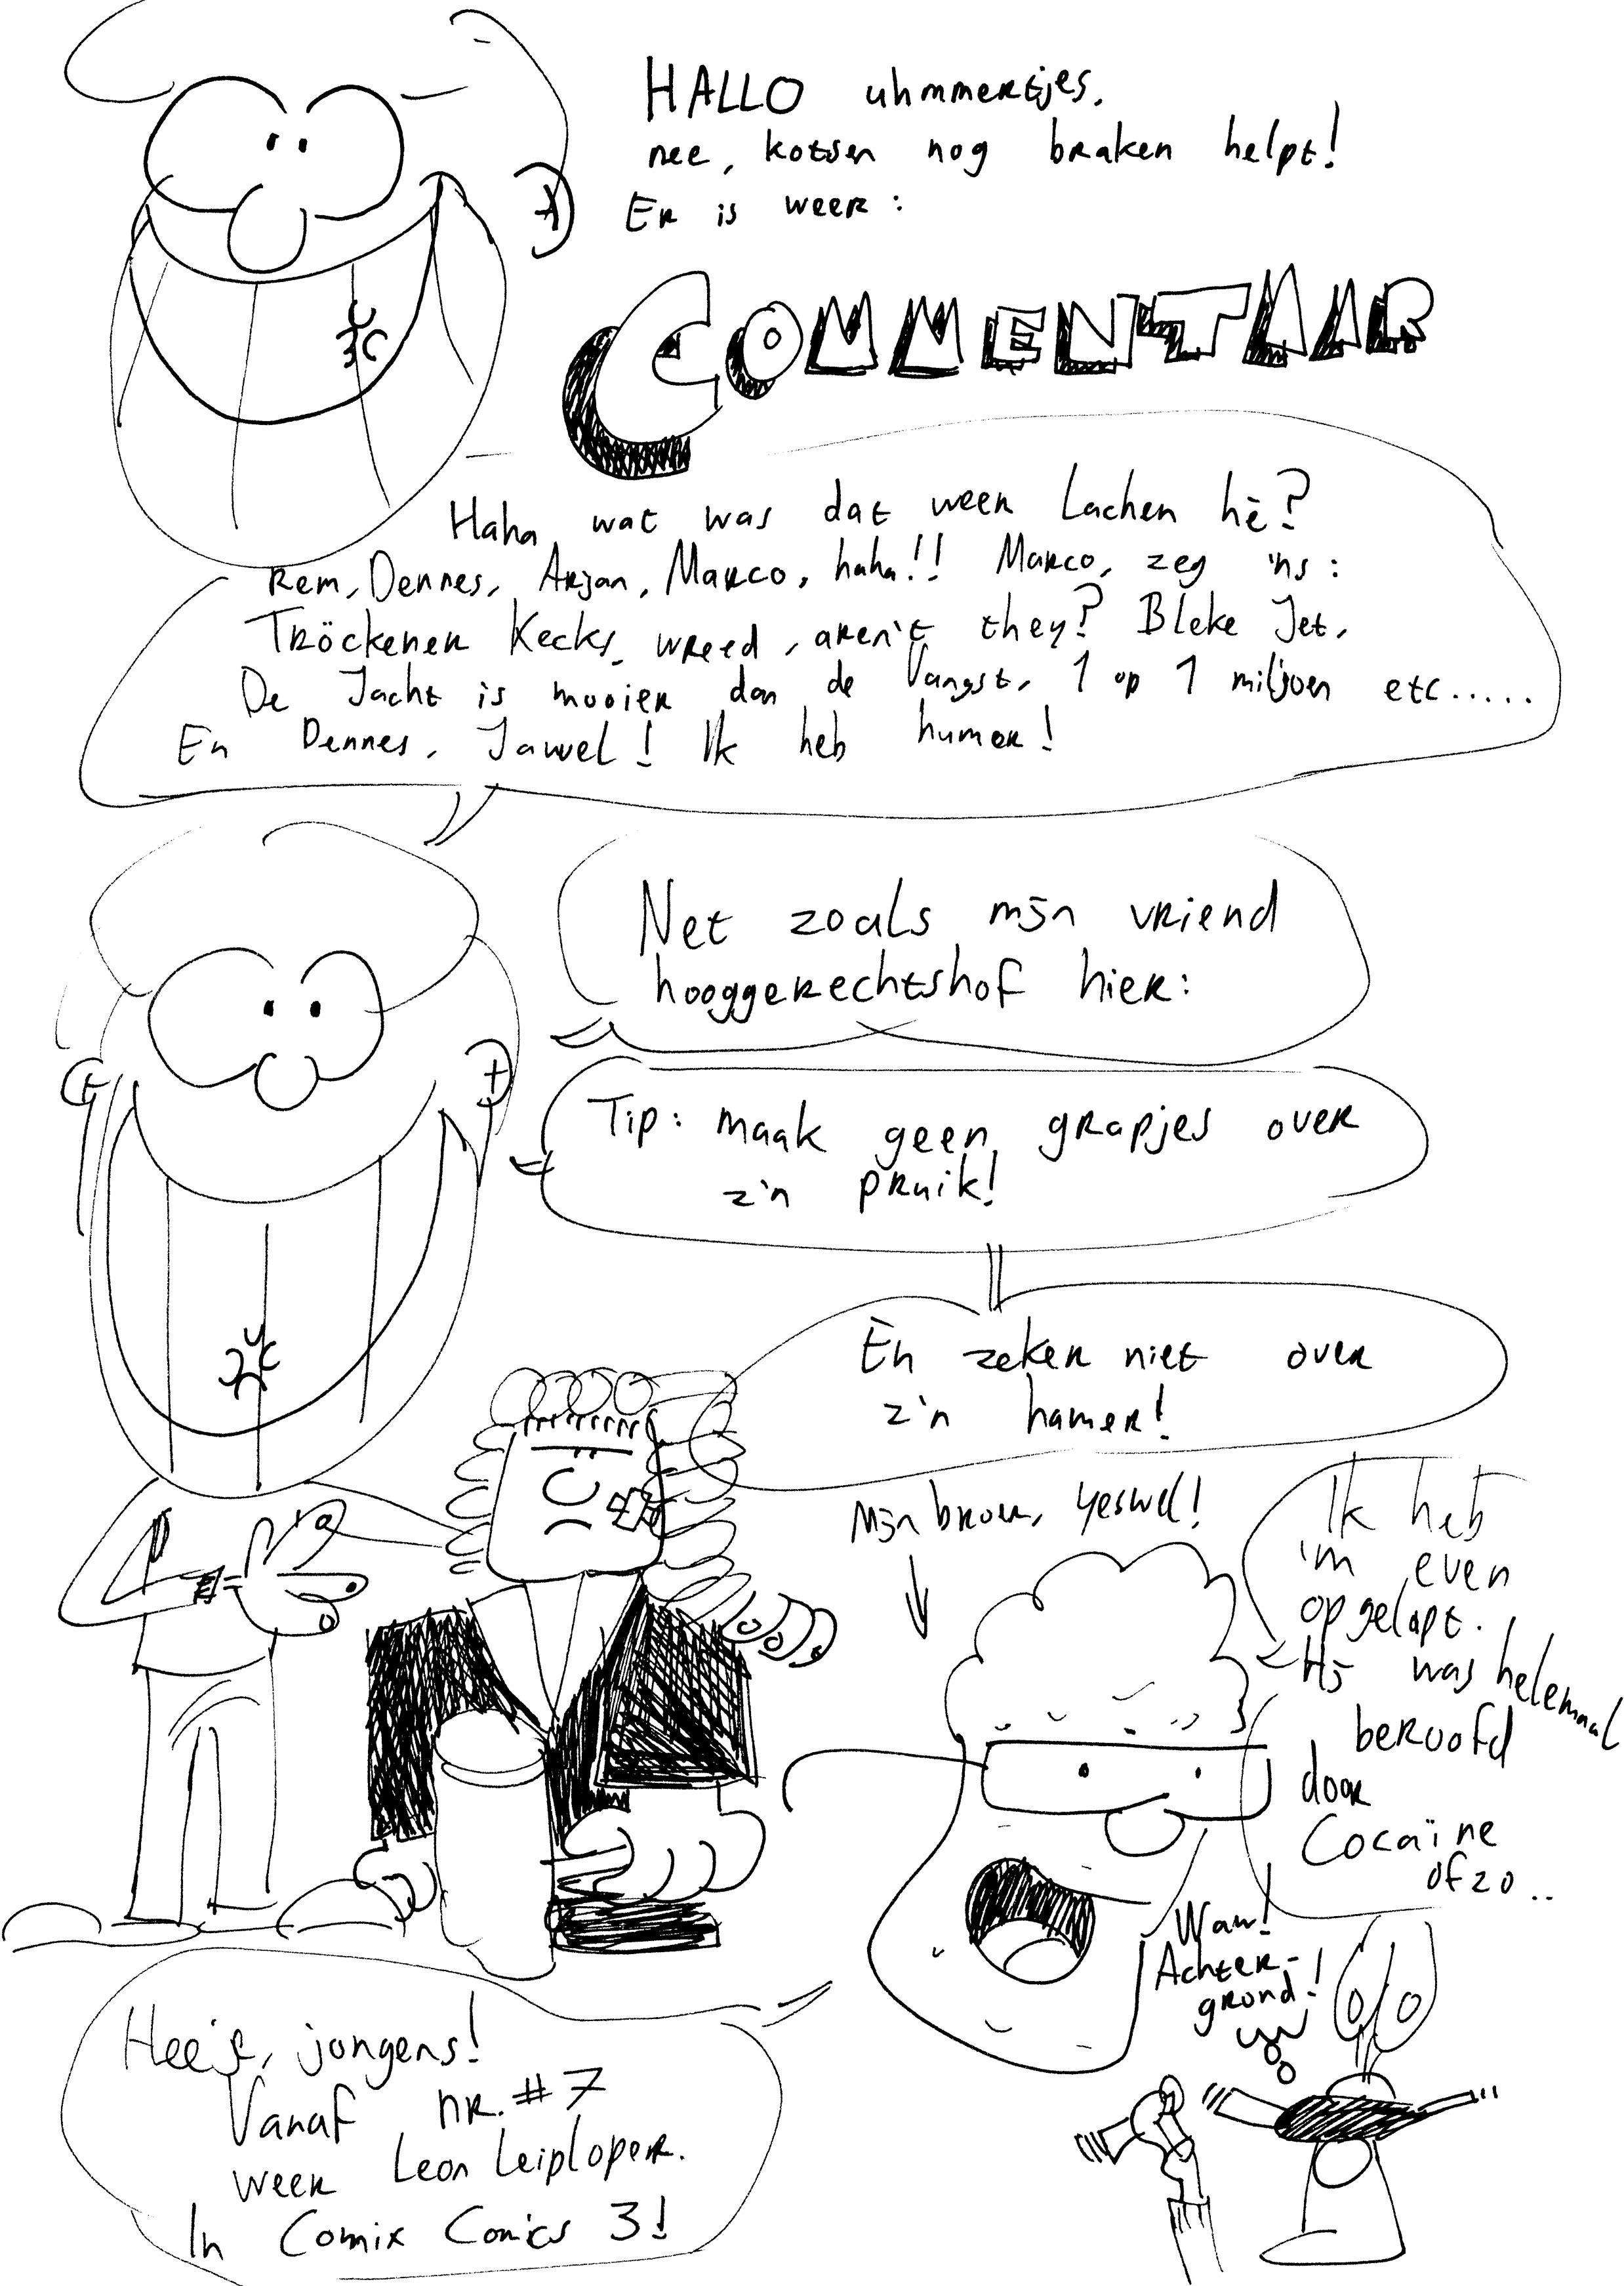 HALLO uhmmertjes,
nee, kotsen nog braken helpt!
Er is weer:
COMMENTAAR
Haha wat was dat weer lachen hè?
Rem, Dennes, Arjan, Marco, haha!! Marco, zeg 'ns:
Tröckener Kecks, wreed, aren't they? Bleke Jet,
De Jacht is mooier dan de Vangst, 1 op 1 miljoen etc.....
En Dennes, Jawel! Ik heb humor!
Net zoals mijn vriend
hooggerechtshof hier:
Tip: maak geen grapjes over
z'n pruik!
Èn zeker niet over
z'n hamer!
Mijn broer, yeswel!
Ik heb
'm even
opgelapt.
Hij was helemaal
beroofd
door
Cocaïne
ofzo..
Waw!
Achter-
grond!
Heeje, jongens!
Vanaf nr. #7
weer Leon Leiploper.
In Comix Comics 3!